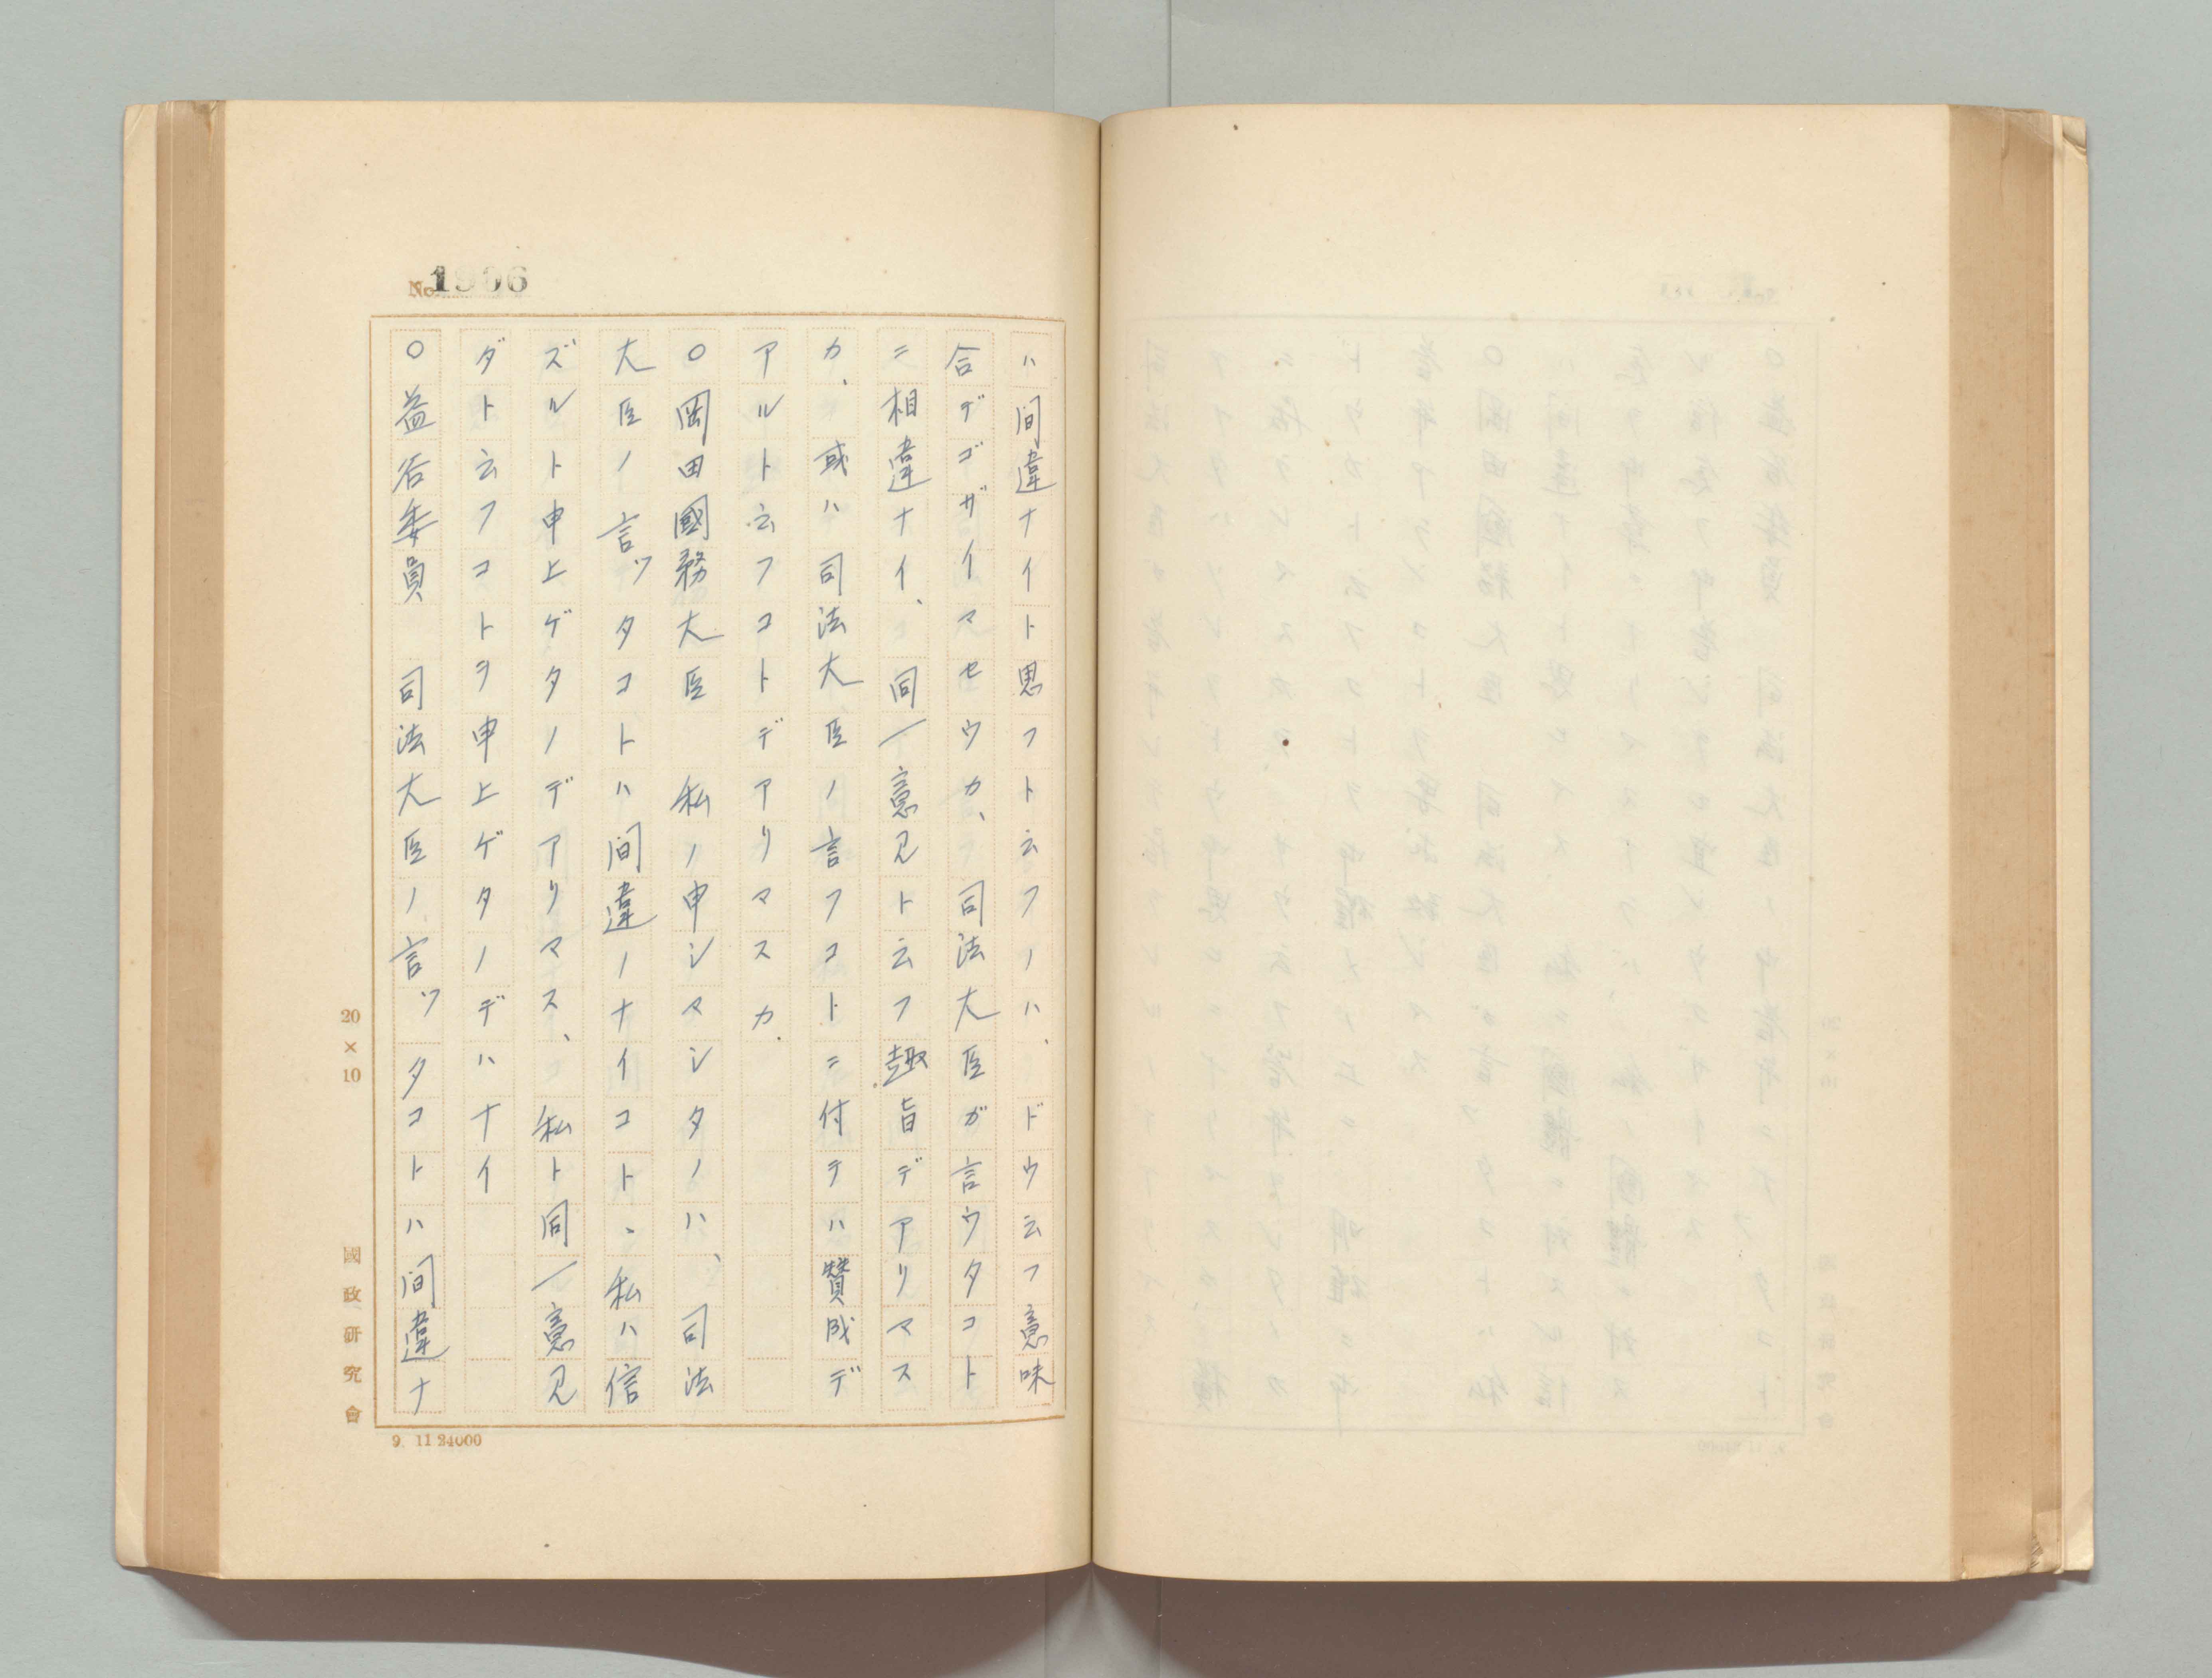 No 1906
ハ間違ナイト思フト云フノハ、ドウ云フ意味
合デゴザイマセウカ、司法大臣ガ言ウタコト
ニ相違ナイ、同一意見ト云フ趣旨デアリマス
カ、或ハ司法大臣ノ言フコトニ付テハ贊成デ
アルト云フコトデアリマスカ、
○岡田國務大臣　私ノ申シマシタノハ、司法
大臣ノ言ツタコトハ間違ノナイコト、私ハ信
ズルト申上ゲタノデアリマス、私ト同一意見
ダト云フコトヲ申上ゲタノデハナイ
○益谷委員　司法大臣ノ言ツタコトハ間違ナ
20×10
國政研究會
9. 11 24000